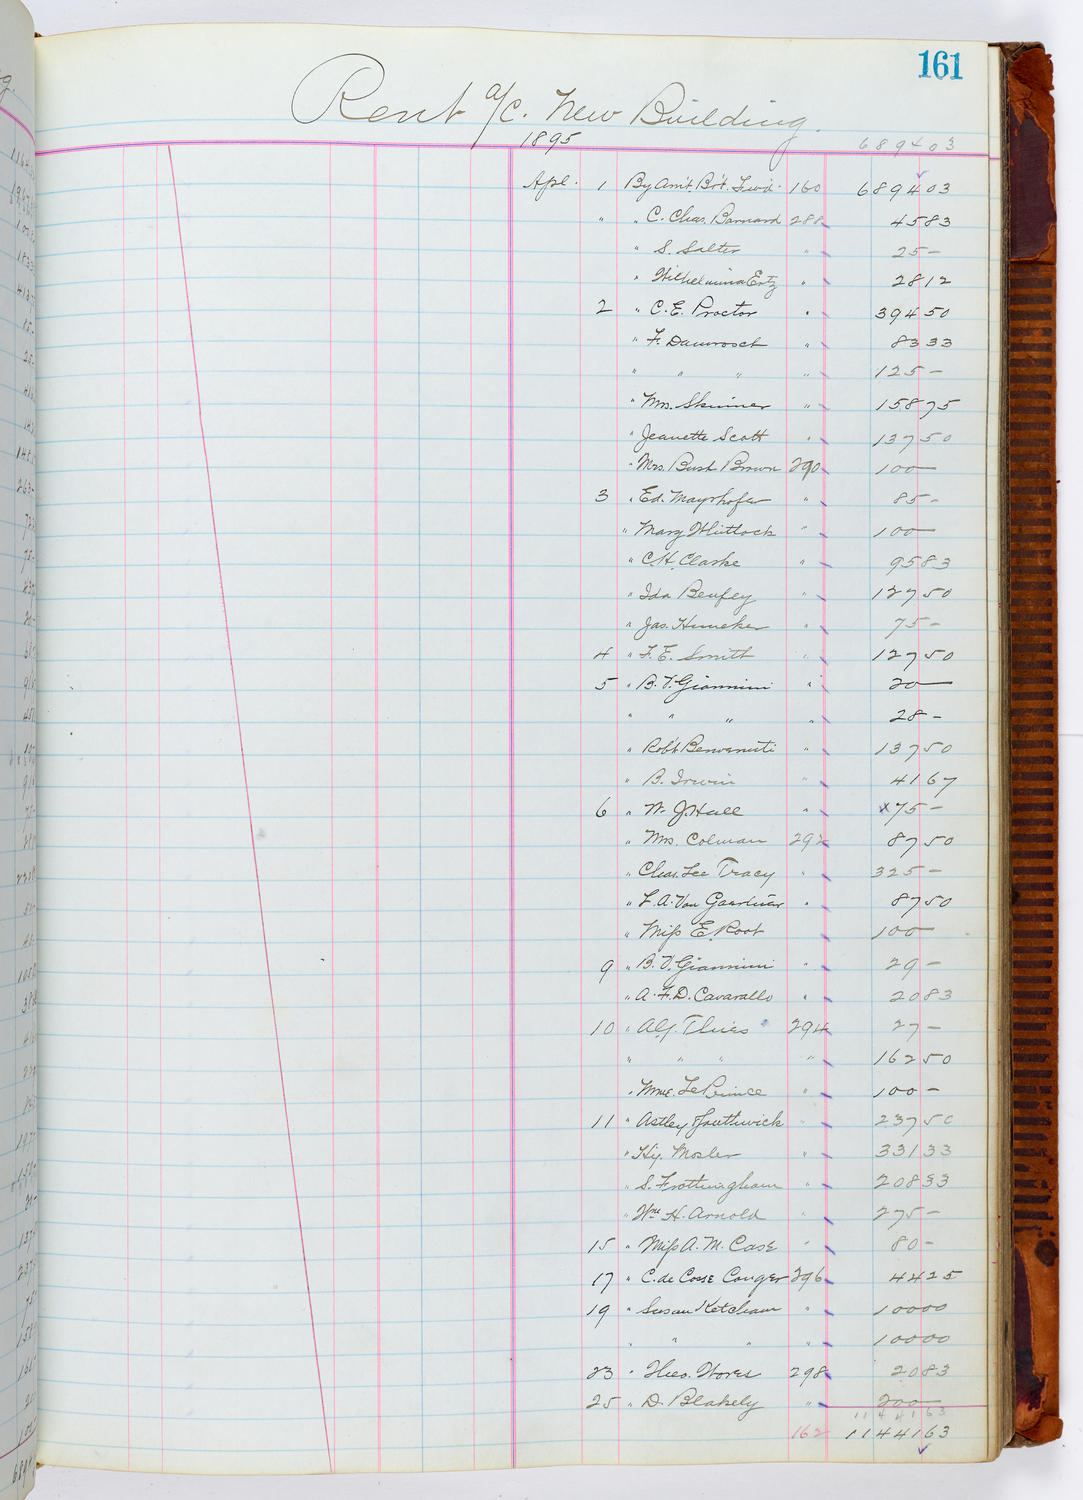 161
Rent a/c. New Building.
1895
689403
Apl. 1 By Am't. Br't. Fwd. 160 689403
" " C. Chas. Barnard 288 4583
" S. Salter " 25 -
" Wilhelmina Ertz " 2812
2 " C. E. Proctor " 39450
" F. Damrosch " 8333
" " " " 125 -
" Mrs. Skinner " 15875
" Jeanette Scott " 13750
" Mrs. Bush Brown 290 100 -
3 " Ed. Mayrhofer " 85 -
" Mary Whitlock " 100 -
" C.H. Clarke " 9583
" Ida Benfey " 12750
" Jas. Huneker " 75 -
4 " F. E. Smith " 12750
5 " B. F. Giannini " 20 -
" " " " 28 -
" Rob't Benvenuti " 13750
" B. Irwin " 4167
6 " W. J. Hall " x75 -
" Mrs. Colman 292 8750
" Chas. Lee Tracy " 325 -
" F. A. Von Gaertner " 8750
" Miss E. Root 100 -
9 " B. F. Giannini " 29 -
" A. F. D. Cavarallo " 2083
10 " Alf. Thies 294 27 -
" " " " 16250
" Mme. Le Prince " 100 -
11 " Astley Southwick " 23750
" Hy. Mosler " 33133
" S. Frothingham " 20833
" Wm H. Arnold " 275 -
15 " Miss A. M. Case " 80 -
17 " C. de Cosse Conger 296 4425
19 " Susan Ketcham " 10000
" " " " 10000
23 " Theo. Wores 298 2083
25 " D. Blakely " 200 -
1144163
162 1144163